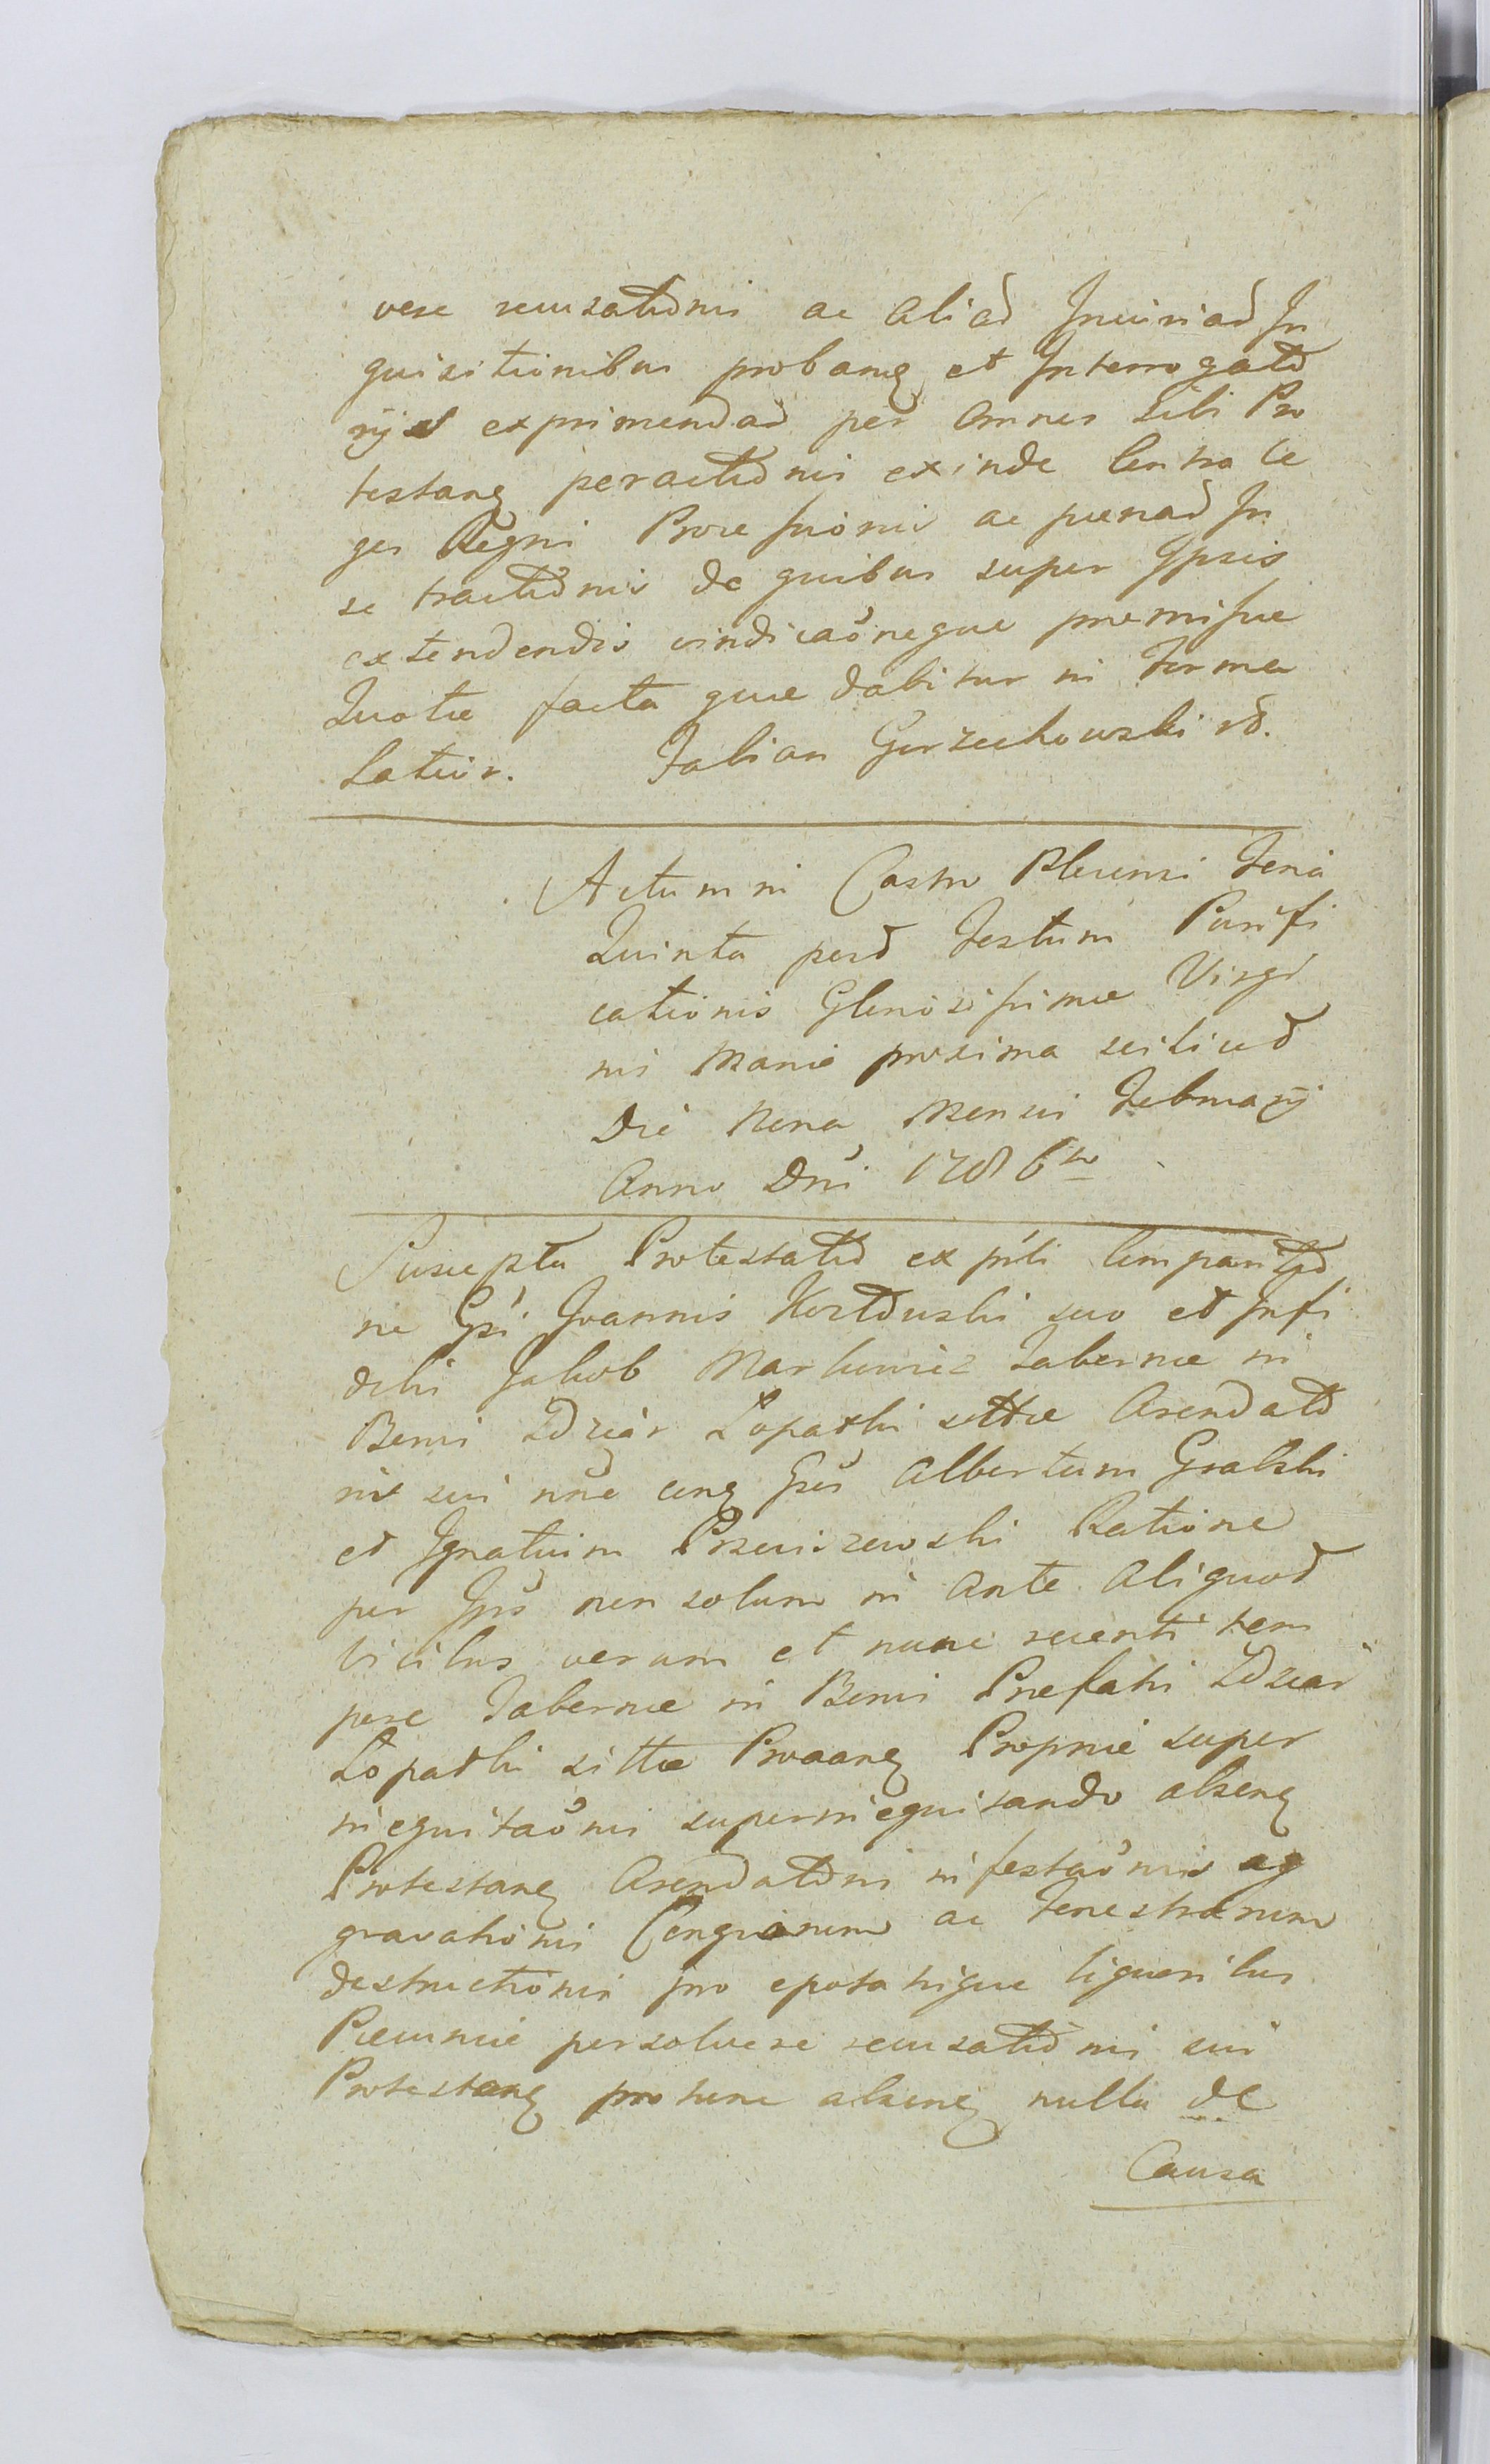 vere recusationis ac aliad Iniuriad In
quisitionibus probang et Interrogatd
rijs exprimendad per omnes Sibi Pro
testang peractionis exinde Contra Le
ges Regni Processionis ac pænad In
se tractionis de quibus super Ipsis
extendendis vindicaõneque premissæ
Quotæ facta quæ dabitur in Forma
Latior. Fabian Gorzechowski rd.
Actum in Castro Plocensi Feria
Quinta post Festum Purifi
cationis Gloriosissimæ Virgi
nis Mariæ proxima scilicet
Die Nona Mensis Februarij
Anno Dni 1786to
Suscepta Protestatio ex pñti Comparitio
ne Gsi Joannis suo et Infi
delis Jakob Markuwicz Tabernæ in
Bonis Zdziar Łopatki sittæ Arendato
ris sui nñe cong Gsos Albertum Gralski
et Ignatium Ratione
per Ipsos non solum in ante aliquod
vicibus verum et nunc recenti tem
pore Tabernæ in Bonis Prefatis Zdziar
Łopatki sittæ Proang Propriæ super
inequitaõnis superinequitando abseng
Protestang Arendatoris infestaõnis ag
gravationis Congiorum ac Fenestrarum
destructionis pro epotatisque liquoribus
Pæcuniæ persolvere recusationis sui
Protestang pro tunc abseng nulla de
Causa